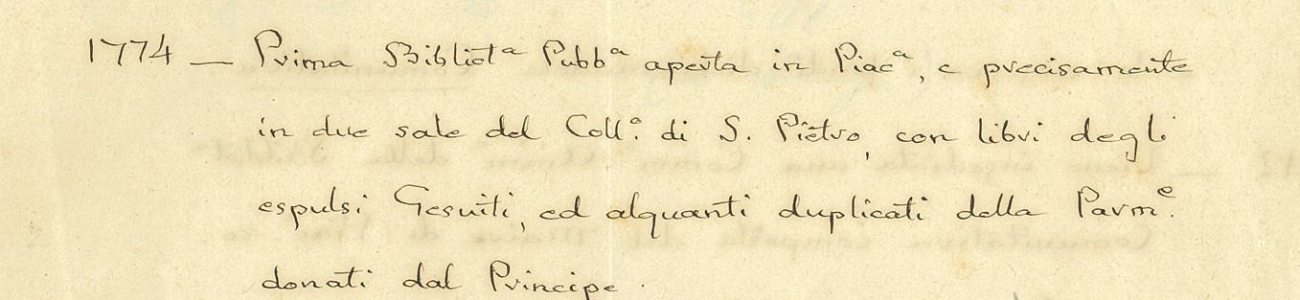 1774 — Prima Bibliotª Pubbª aperta in Piacª, e precisamente
in due sale del Coll°. di S. Pietro, con libri degli
espulsi Gesuiti, ed alquanti duplicati della Parmᵉ.
donati dal Principe.